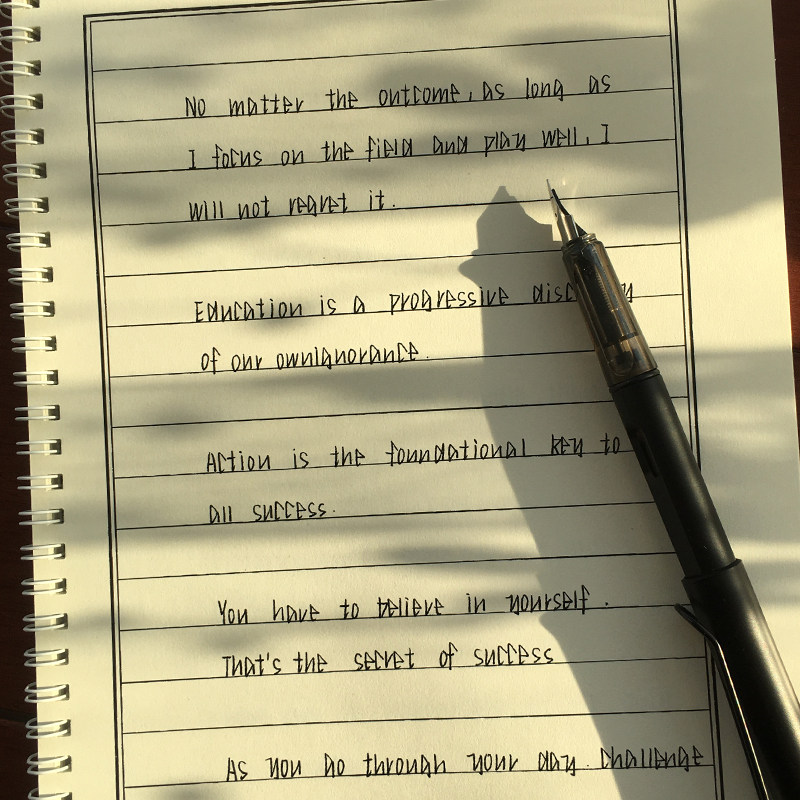 No matter the outcome, as long as
I focus on the field and play well, I
will not regret it.
Education is a progressive
of our ownignorance.
Action is the foundational key to
all success.
You have to believe in yourself.
That's the secret of success
As you go through your day. challenge